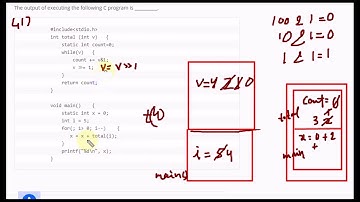 The output of executing the following C program is ________.
417
#include<stdio.h>
int total (int v) {
static int count=0;
while(v) {
count += v&1;
v >>= 1; v = v>>1
}
return count;
}
void main() {
static int x = 0;
int i = 5;
for(; i> 0; i--) {
x = x + total(i);
}
printf("%d\n", x);
}
t(4)
v=4 2 1 0
i = 5 4
main
100 & 1 = 0
10 & 1 = 0
1 & 1 = 1
total
count = 0
3 2
x = 0 + 2
+
main